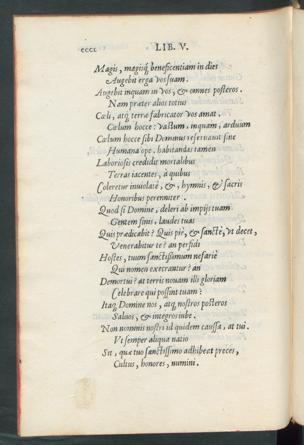 cccc LIB. V.
Magis, magisq́ beneficentiam in dies
Augebit erga vos suam.
Augebit inquam in vos, & omnes posteros.
Nam præter alios totius
Cœli, atq́ terræ fabricator vos amat.
Cœlum hocce: vastum, inquam, arduum
Cœlum hocce sibi Dominus reservavit sine
Humana ope, habitandas tamen
Laboriosis credidit mortalibus
Terras iacentes, à quibus
Coleretur inviolatè, &, hymnis, & sacris
Honoribus perenniter.
Quod si Domine, deleri ab impijs tuam
Gentem sinis, laudes tuas
Quis prædicabit? Quis piè, & sanctè, vt decet,
Venerabitur te? an perfidi
Hostes, tuum sanctissimum nefariè
Qui nomen execrantur? an
Demortui? at terris nouam illi gloriam
Celebrare qui possint tuam?
Itaq́ Domine nos, atq́ nostros posteros
Saluos, & integros iube.
Non nominis nostri id quidem caussa, at tui.
Vt semper aliqua natio
Sit, quæ tuo sanctissimo adhibeat preces,
Cultus, honores, numini.